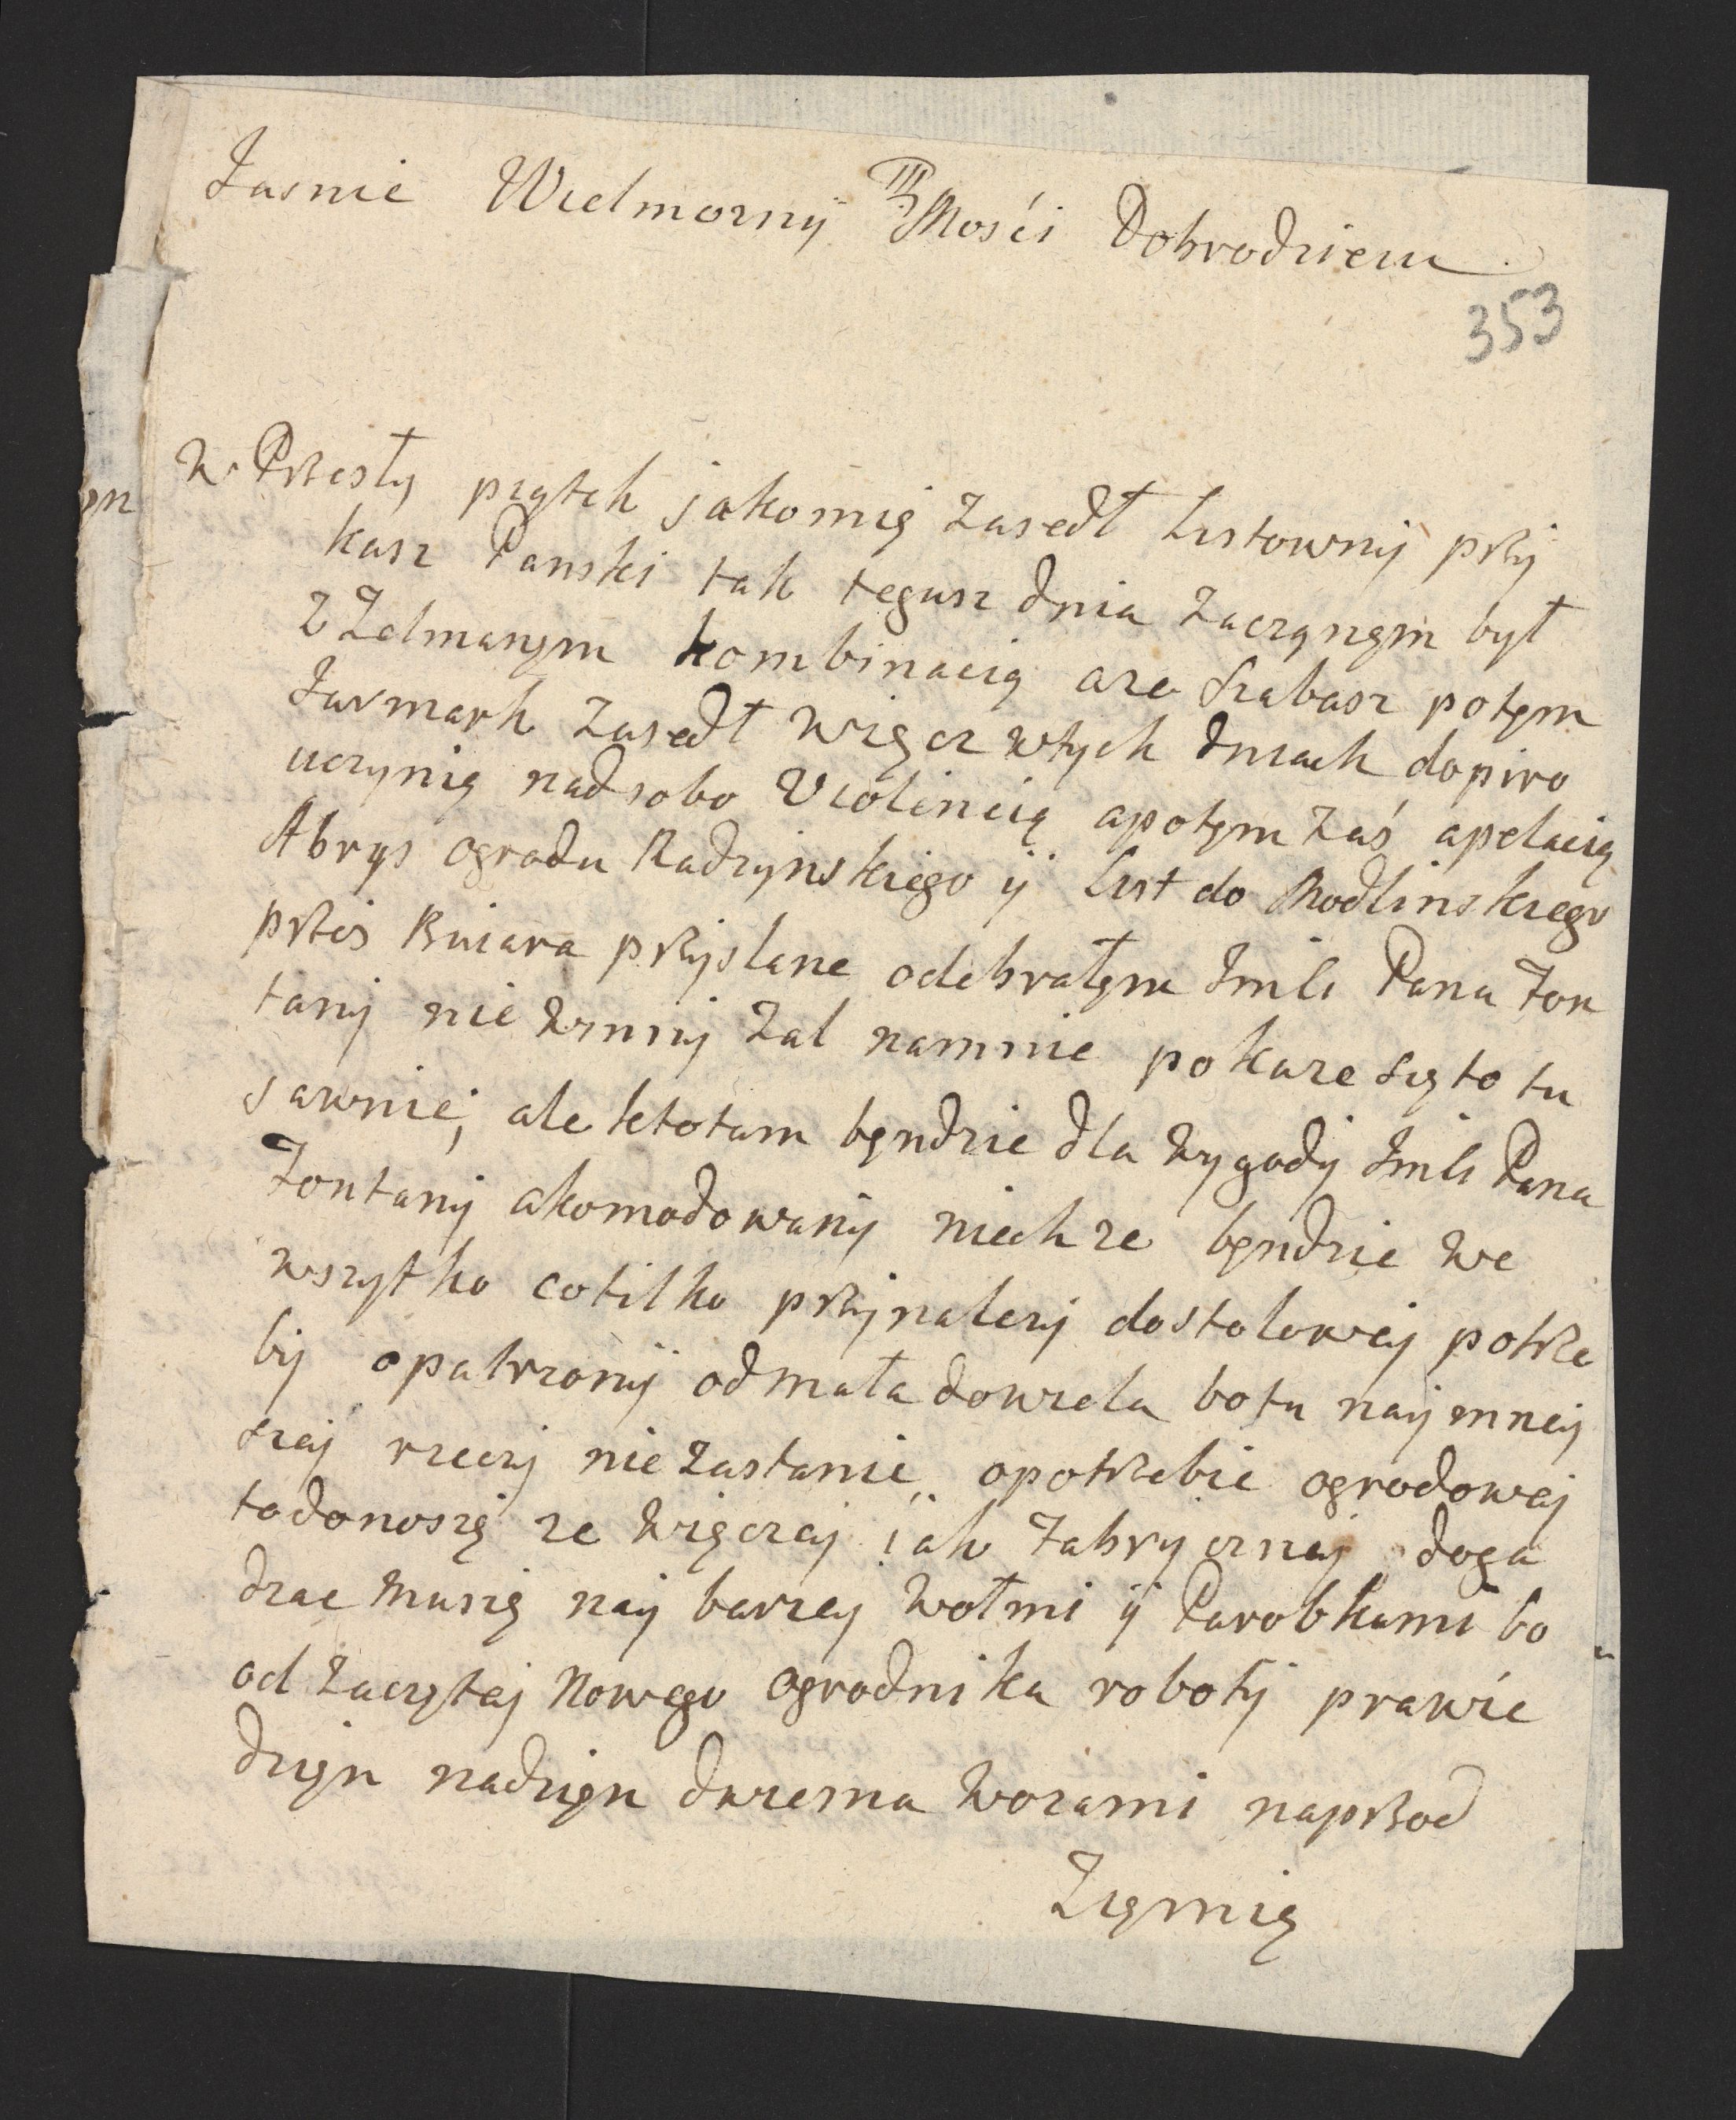 Jasnie Wielmozny Mości Dobrodzieiu
353
W Przesły piątek jakomię zasedł Listowny przy
kasz Panski tak tegusz dnia zaczynem był
z Zelmanym kombinacią aze szabasz potym
Jarmark zasedł więcz wtych dniach dopiro
uczynię nadsobo Violincią apotym zaś apelacią
Abrys ogrodu Radzynskiego ÿ List do Modlinskiego
przes przyslane odebrałym Jmści Pana Fon
tany nie żal namnie pokaze się to tu
sawniej, ale ktotam będzie dla wygody Jmści Pana
Fontany akomodowany niech ze będzie we
wszytko cotilko przynalezy dostolowej potrze
by opatrzony odmała dowiela botu nay mnej
szej rzeczy nie zastanie opotrzebie ogrodowej
todonoszę ze więczej iak Fabrycznej doga
dzac muszę nay barzey wołmi ÿ Parobkami bo
od zaczętej Nowego ogrodnika roboty prawie
dzięn nadzięn dwiema wozami naprzod
Ziemię